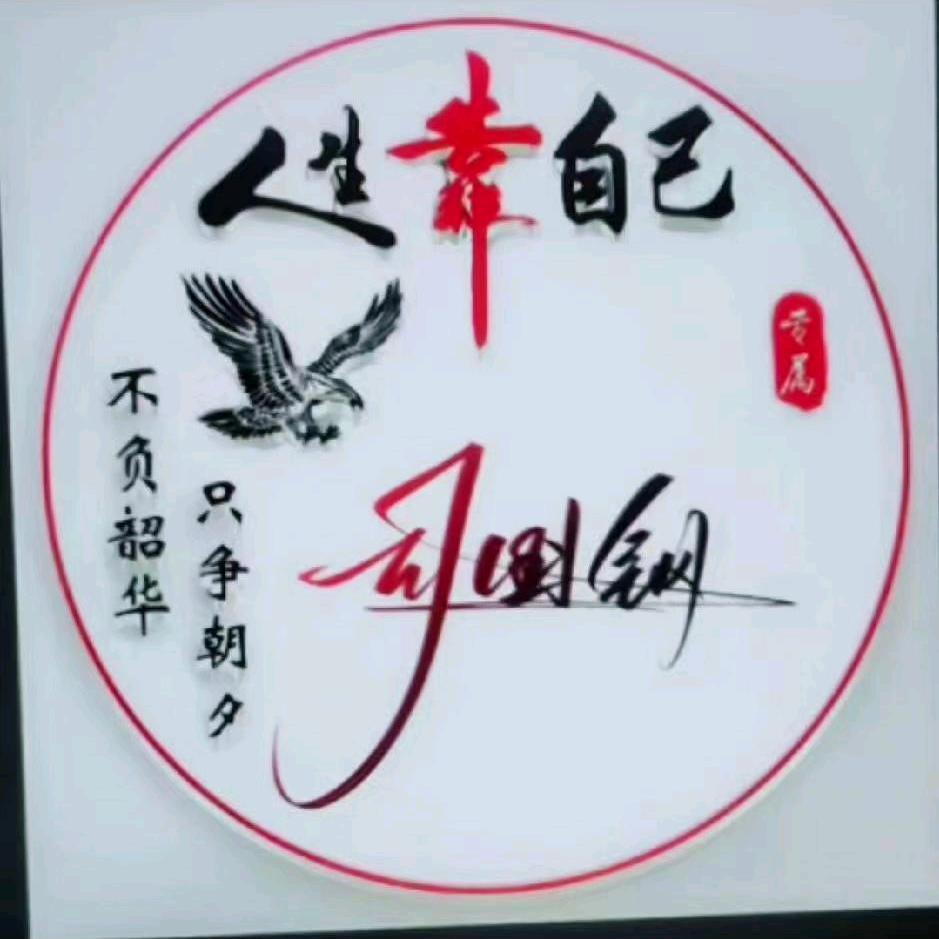 人生靠自己
专属
不负韶华
只争朝夕